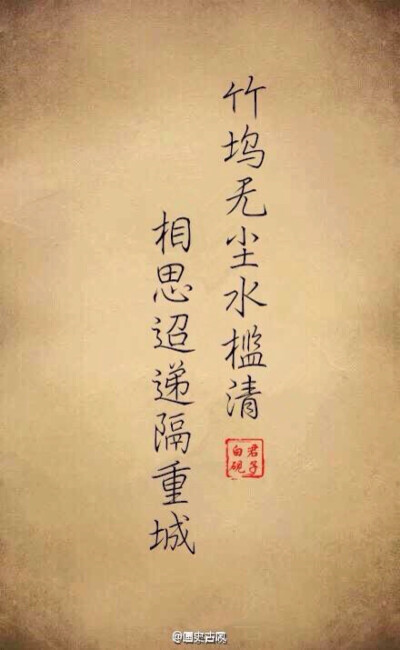 竹坞无尘水槛清
相思迢递隔重城
君子
白砚